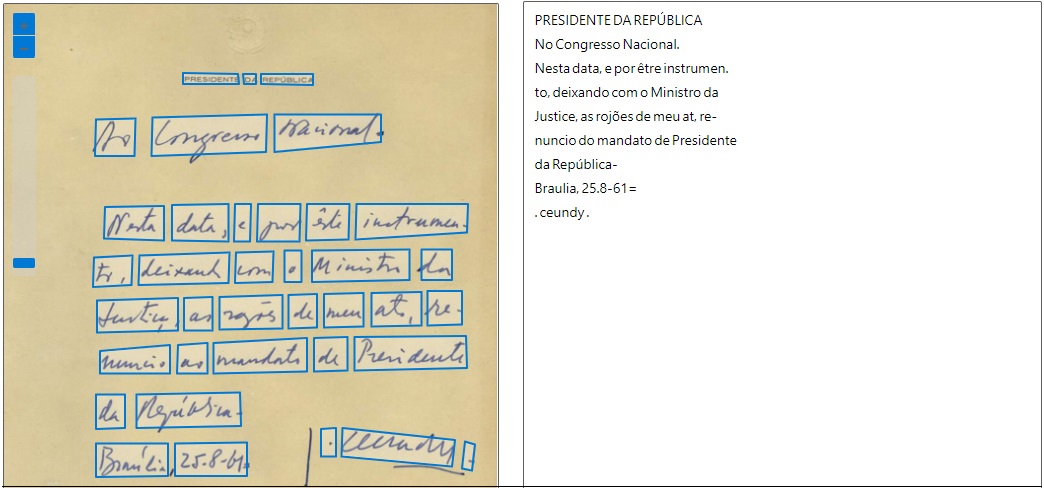 PRESIDENTE DA REPÚBLICA
Ao Congresso Nacional.
Nesta data, e por êste instrumen-
to, deixando com o Ministro da
Justiça, as razões de meu ato, re-
nuncio ao mandato de Presidente
da República.
Brasília, 25.8.61.
PRESIDENTE DA REPÚBLICA
No Congresso Nacional.
Nesta data, e por être instrumen.
to, deixando com o Ministro da
Justice, as rojões de meu at, re-
nuncio do mandato de Presidente
da República-
Braulia, 25.8-61=
. ceundy .